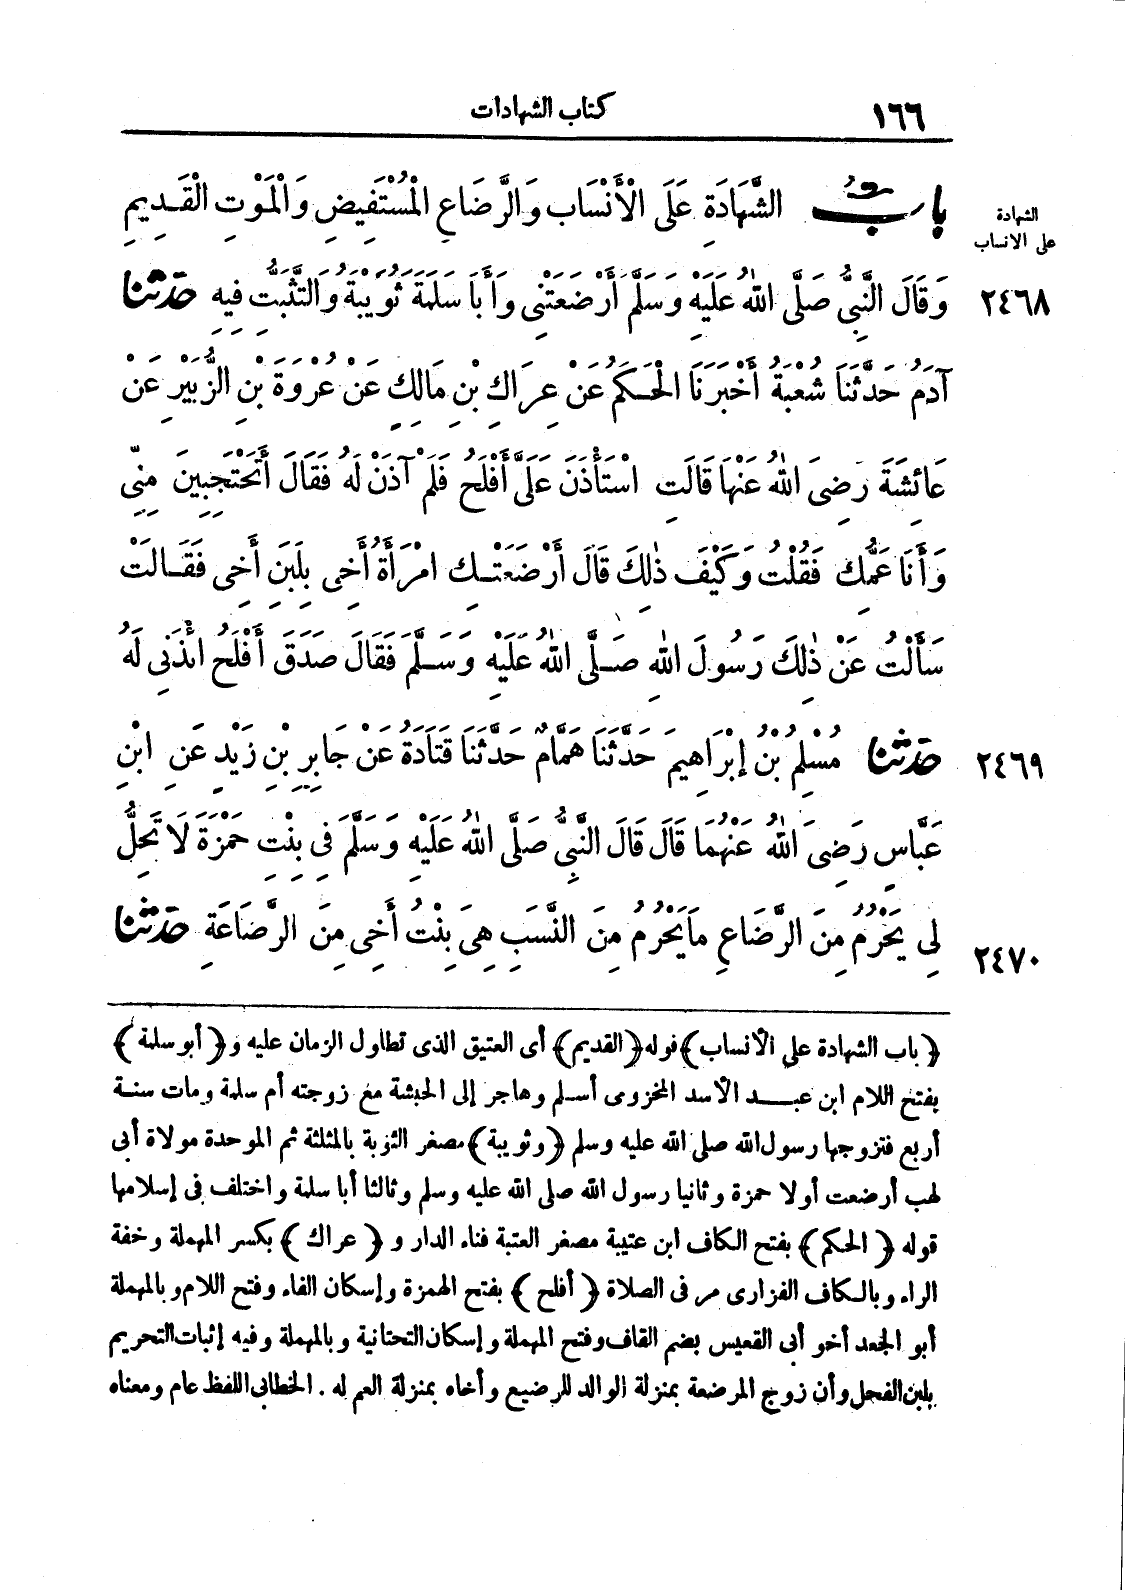 ١٦٦
كتاب الشهادات
الشهادة
على الانساب
بابُ الشَّهَادَةِ عَلَى الْأَنْسَابِ وَالرَّضَاعِ الْمُسْتَفِيضِ وَالْمَوْتِ الْقَدِيمِ
٢٤٦٨
وَقَالَ النَّبِيُّ صَلَّى اللهُ عَلَيْهِ وَسَلَّمَ أَرْضَعَتْنِي وَأَبَا سَلَمَةَ ثُوَيْبَةُ وَالتَّثَبُّتِ فِيهِ حَدَّثَنَا
آدَمُ حَدَّثَنَا شُعْبَةُ أَخْبَرَنَا الْحَكَمُ عَنْ عِرَاكِ بْنِ مَالِكٍ عَنْ عُرْوَةَ بْنِ الزُّبَيْرِ عَنْ
عَائِشَةَ رَضِىَ اللهُ عَنْهَا قَالَتِ اسْتَأْذَنَ عَلَىَّ أَفْلَحُ فَلَمْ آذَنْ لَهُ فَقَالَ أَتَحْتَجِبِينَ مِنِّى
وَأَنَا عَمُّكِ فَقُلْتُ وَكَيْفَ ذٰلِكَ قَالَ أَرْضَعَتْكِ امْرَأَةُ أَخِى بِلَبَنِ أَخِى فَقَالَتْ
سَأَلْتُ عَنْ ذٰلِكَ رَسُولَ اللهِ صَلَّى اللهُ عَلَيْهِ وَسَلَّمَ فَقَالَ صَدَقَ أَفْلَحُ ائْذَنِى لَهُ
٢٤٦٩
حَدَّثَنَا مُسْلِمُ بْنُ إِبْرَاهِيمَ حَدَّثَنَا هَمَّامٌ حَدَّثَنَا قَتَادَةُ عَنْ جَابِرِ بْنِ زَيْدٍ عَنِ ابْنِ
عَبَّاسٍ رَضِىَ اللهُ عَنْهُمَا قَالَ قَالَ النَّبِىُّ صَلَّى اللهُ عَلَيْهِ وَسَلَّمَ فِى بِنْتِ حَمْزَةَ لَا تَحِلُّ
لِى يَحْرُمُ مِنَ الرَّضَاعِ مَا يَحْرُمُ مِنَ النَّسَبِ هِىَ بِنْتُ أَخِى مِنَ الرَّضَاعَةِ حَدَّثَنَا
٢٤٧٠
﴿باب الشهادة على الأنساب﴾ قوله ﴿القديم﴾ أى العتيق الذى تطاول الزمان عليه و﴿أبو سلمة﴾
بفتح اللام ابن عبد الأسد المخزوى أسلم وهاجر إلى الحبشة مع زوجته أم سلمة ومات سنة
أربع فتزوجها رسول الله صلى الله عليه وسلم ﴿وثويبة﴾ مصغر الثوبة بالمثلثة ثم الموحدة مولاة أبى
لهب أرضعت أولا حمزة وثانيا رسول الله صلى الله عليه وسلم وثالثا أبا سلمة واختلف فى إسلامها
قوله ﴿الحكم﴾ بفتح الكاف ابن عتيبة مصغر العتبة فناء الدار و﴿عراك﴾ بكسر المهملة وخفة
الراء وبالكاف الفزارى مر فى الصلاة ﴿أفلح﴾ بفتح الهمزة وإسكان الفاء وفتح اللام وبالمهملة
أبو الجعد أخو أبى القعيس بضم القاف وفتح المهملة وإسكان التحتانية وبالمهملة وفيه إثبات التحريم
بلبن الفحل وأن زوج المرضعة بمنزلة الوالد للرضيع وأخاه بمنزلة العم له . الخطابى اللفظ عام ومعناه